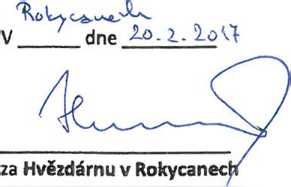 Rokycanech
V dne 20.2.2017
za Hvězdárnu v Rokycanech